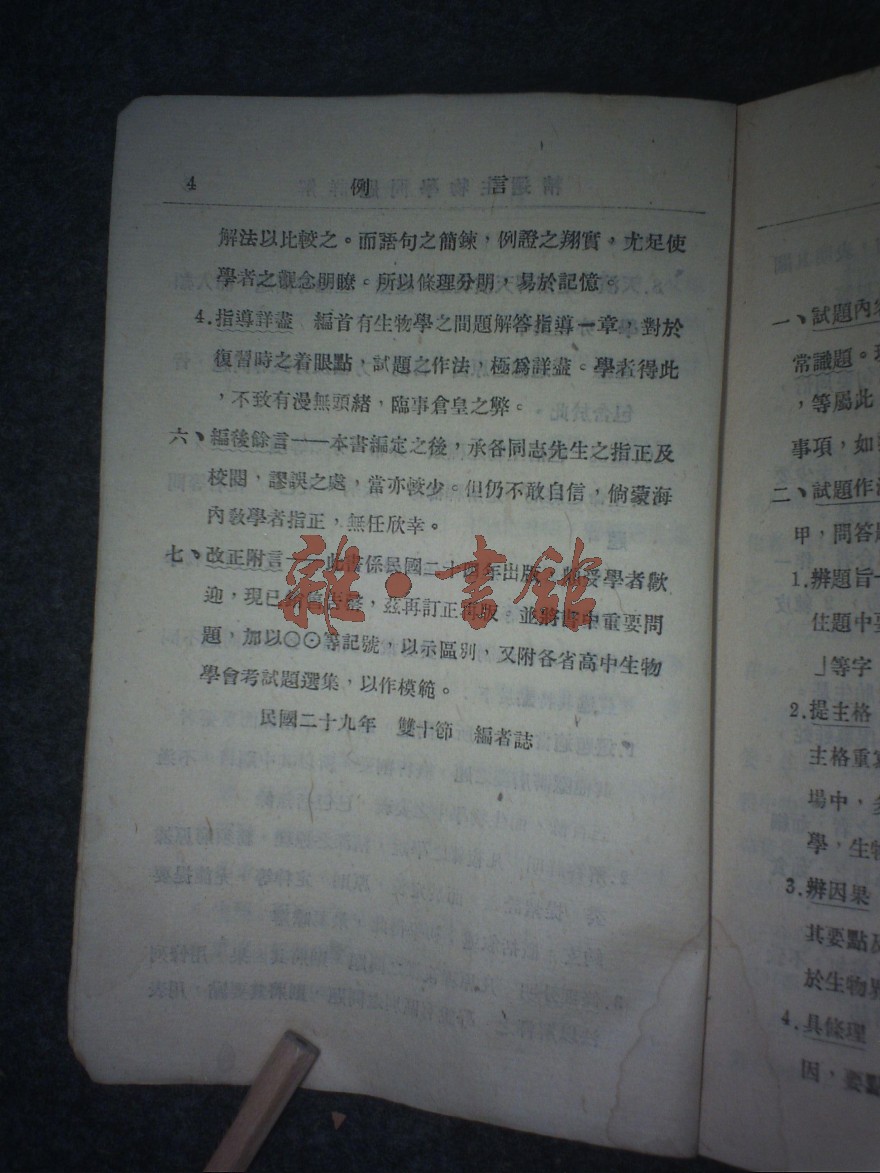 4 例言
解法以比較之。而語句之簡鍊，例證之翔實，尤足使
學者之觀念朋瞭。所以條理分明，易於記憶。
4.指導詳盡 編首有生物學之問題解答指導一章，對於
復習時之着眼點，試題之作法，極爲詳盡。學者得此
，不致有漫無頭緒，臨事倉皇之弊。
六、編後餘言——本書編定之後，承各同志先生之指正及
校閱，謬誤之處，當亦較少。但仍不敢自信，倘蒙海
內敎學者指正，無任欣幸。
七、改正附言——此書係民國二十四年出版，頗受學者歡
迎，現已銷售告盡，茲再訂正再版，並將書中重要問
題，加以○⊙等記號，以示區別，又附各省高中生物
學會考試題選集，以作模範。
民國二十九年 雙十節 編者誌
雜·書館
一、試題內
常識題。
，等屬此
事項，如
二、試題作
甲，問答題
1.辨題旨
住題中
」等字
2.提主格
主格重
場中，
學，生物
3.辨因果
其要點及
於生物界
4.具條理
因，要點